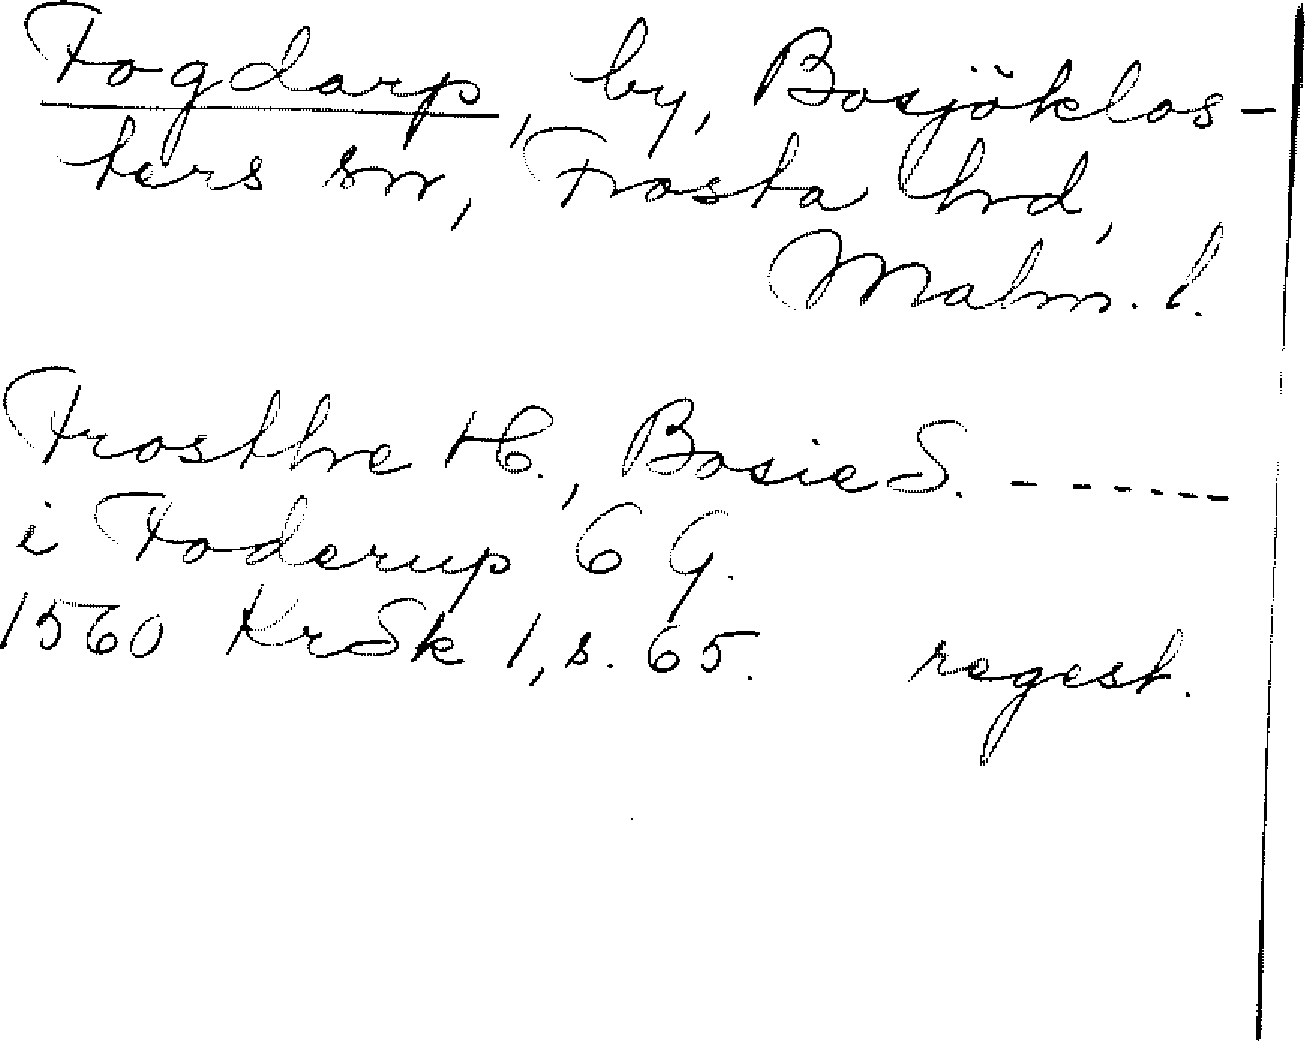 Fogdarp, by, Bosjöklos-
ters sn, Frosta hrd,
Malm. l.
Frosthre H., Bosie S. ------
i Foderup 6 G.
1560 KrSk 1, s. 65. regest.